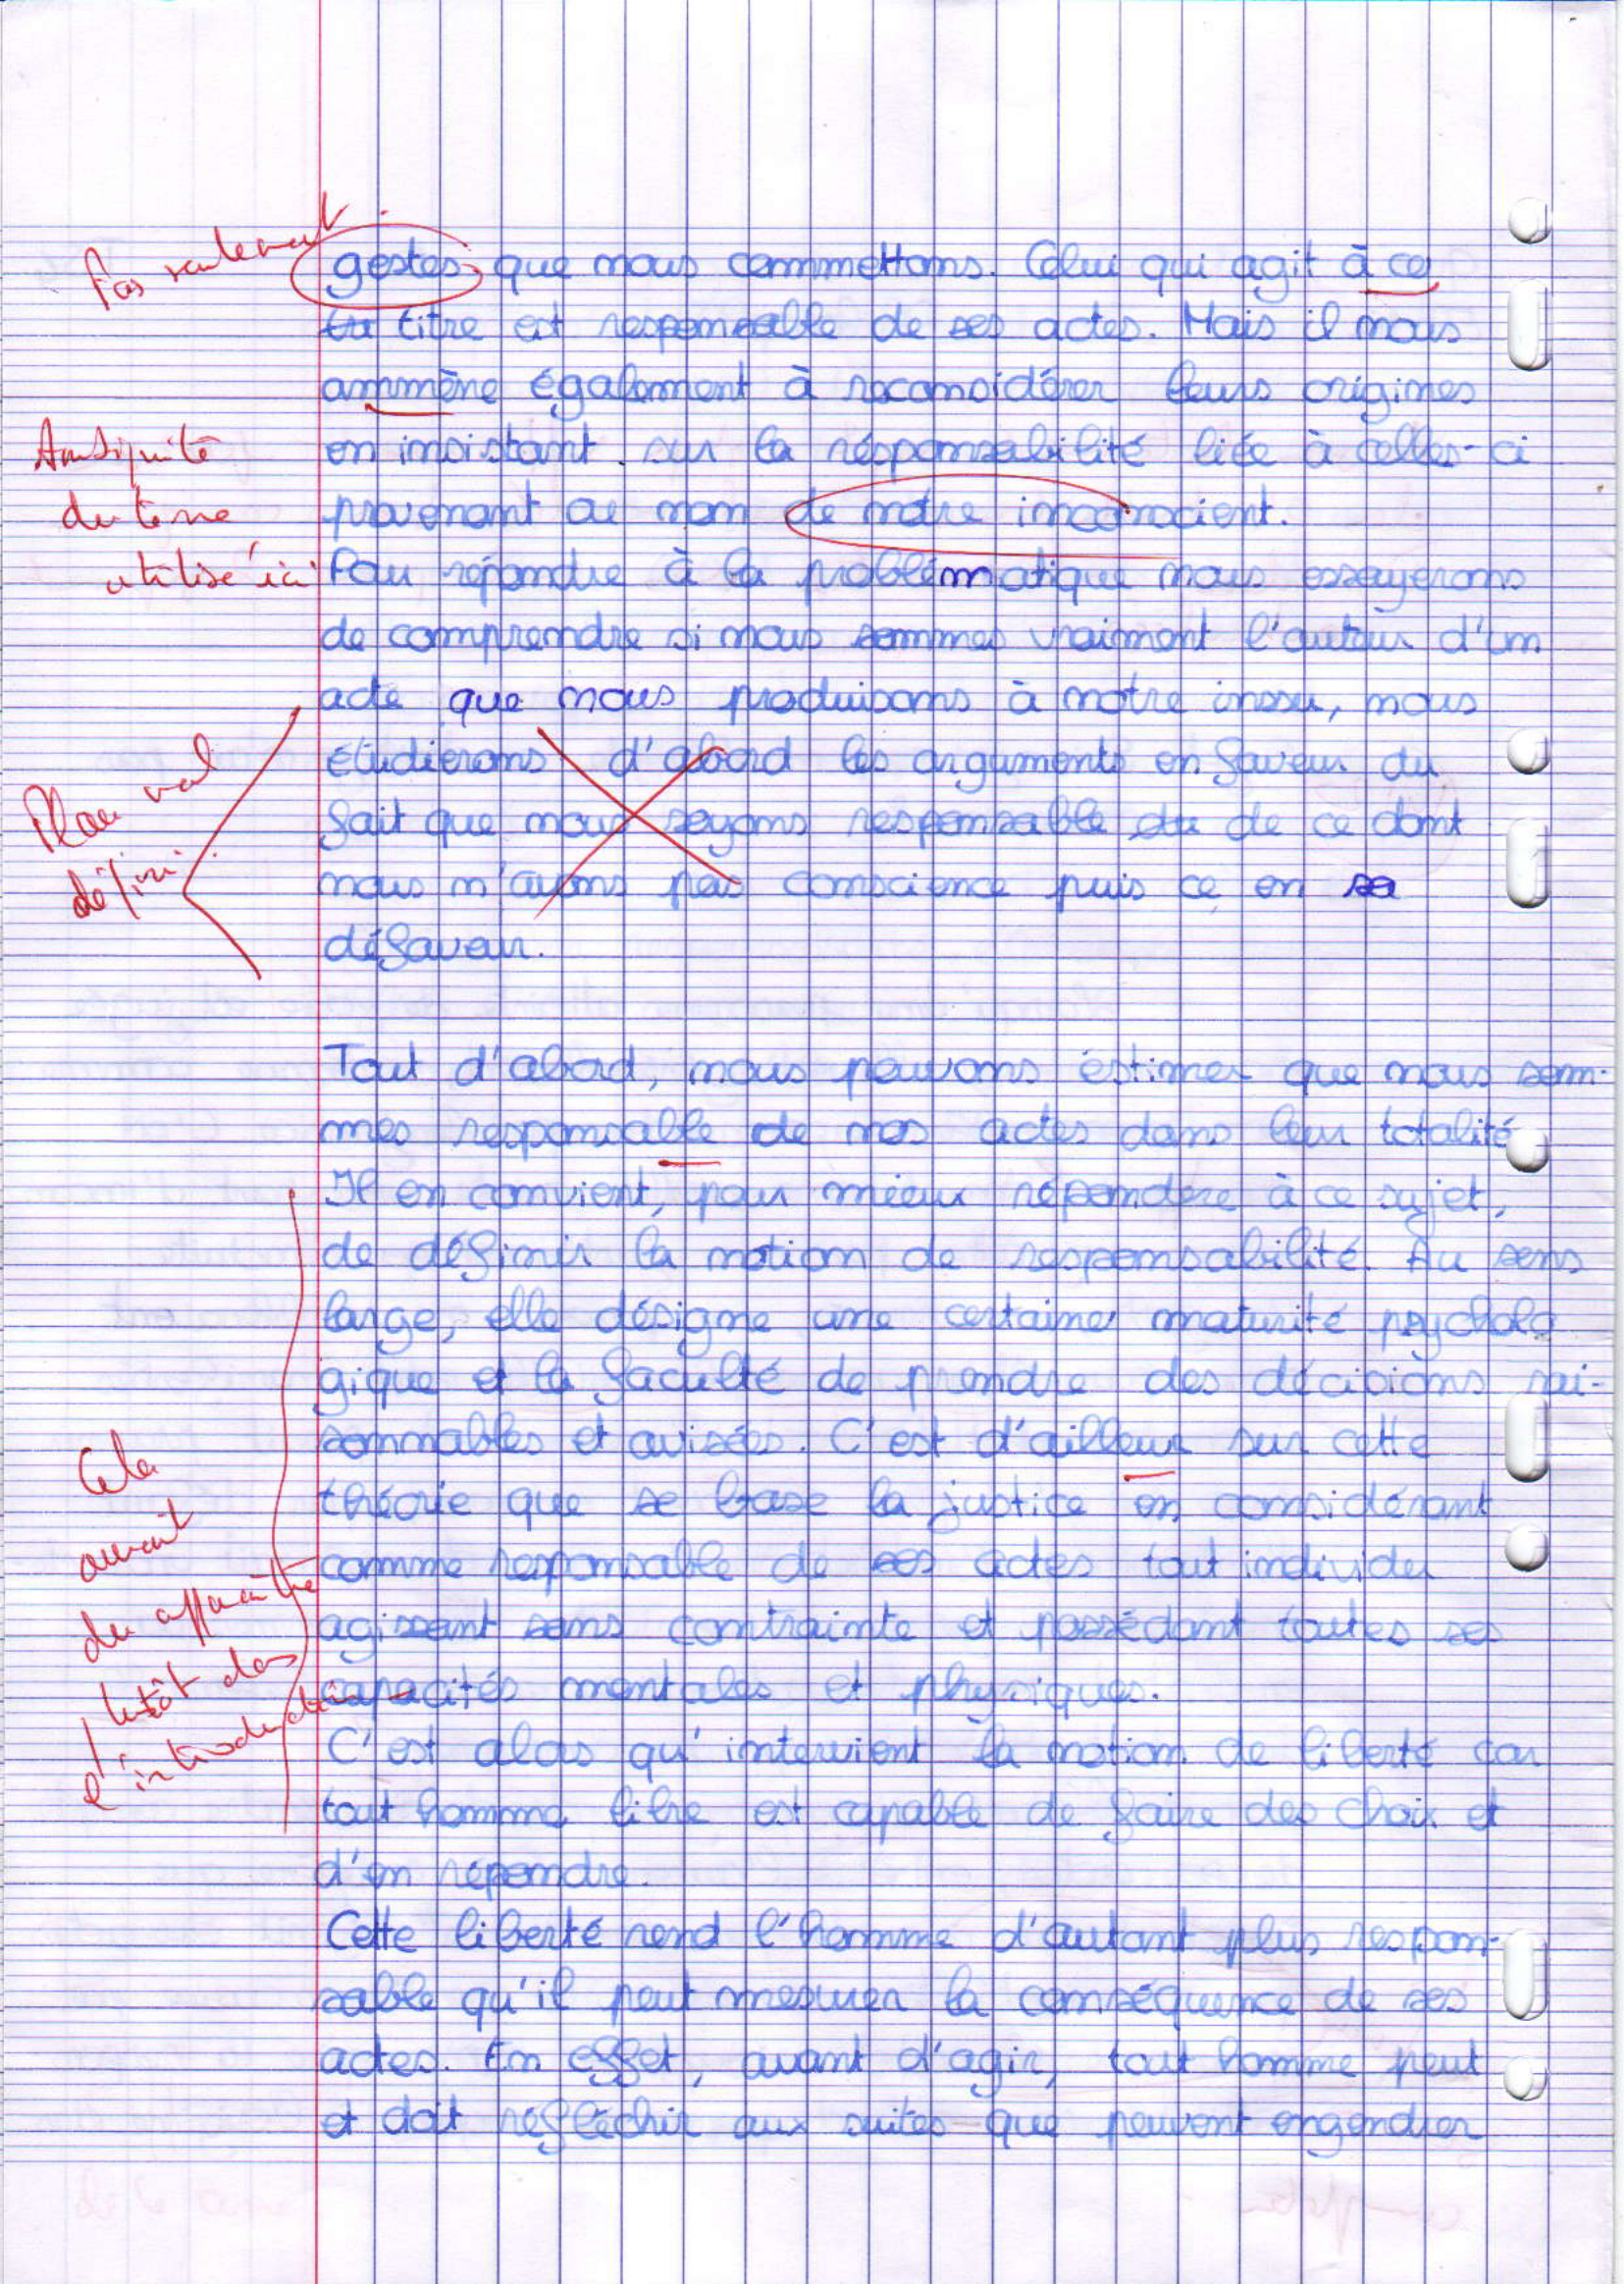 Pas seulement
gestes que nous commettons. Celui qui agit à ce
titre est responsable de ses actes. Mais il nous
ammène également à reconsidérer leurs origines
en insistant sur la résponsabilité liée à celles-ci
provenant ou non de notre inconscient.
Ambiguité
du terme
utilisé ici
Pour répondre à la problématique nous essayerons
de comprendre si nous sommes vraiment l'auteur d'un
acte que nous produisons à notre inssu, nous
étudierons d'abord les arguments en faveur du
fait que nous soyons responsable de ce dont
nous n'ayons pas conscience puis ce en sa
défaveur.
Plan mal
défini.
Tout d'abord, nous pouvons éstimer que nous som-
mes responsable de nos actes dans leur totalité
Il en convient, pour mieux répondere à ce sujet,
de définir la notion de responsabilité. Au sens
large, elle désigne une certaine maturité psycholo
gique et la faculté de prendre des décisions rai-
sonnables et avisées. C'est d'ailleur sur cette
théorie que se base la justice en considérant
comme responsable de ses actes tout individu
agissant sans contrainte et possédant toutes ses
capacités mentales et physiques.
Cela
aurait
du apparaître
plutôt dans
l'introduction
C'est alors qu'intervient la notion de liberté car
tout homme libre est capable de faire des choix et
d'en répondre.
Cette liberté rend l'homme d'autant plus respon-
sable qu'il peut mesurer la conséquence de ses
actes. En effet, avant d'agir, tout homme peut
et doit réfléchir aux suites que peuvent engendrer